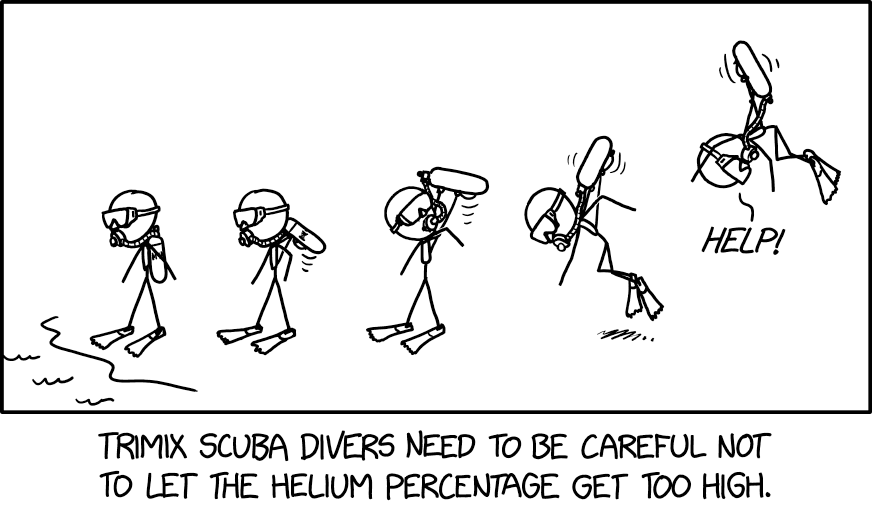 HELP!
TRIMIX SCUBA DIVERS NEED TO BE CAREFUL NOT
TO LET THE HELIUM PERCENTAGE GET TOO HIGH.